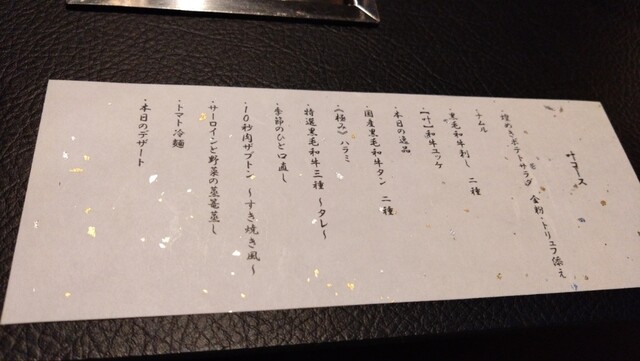 叶コース
・煌めきポテトサラダ 金粉・トリュフ添え
・ナムル
・黒毛和牛刺し 二種
・【叶】和牛ユッケ
・本日の逸品
・国産黒毛和牛タン 二種
・《極み》ハラミ
・特選黒毛和牛三種 ～タレ～
・季節のひと口直し
・10秒肉ザブトン ～すき焼き風～
・サーロインと野菜の蒸篭蒸し
・トマト冷麺
・本日のデザート